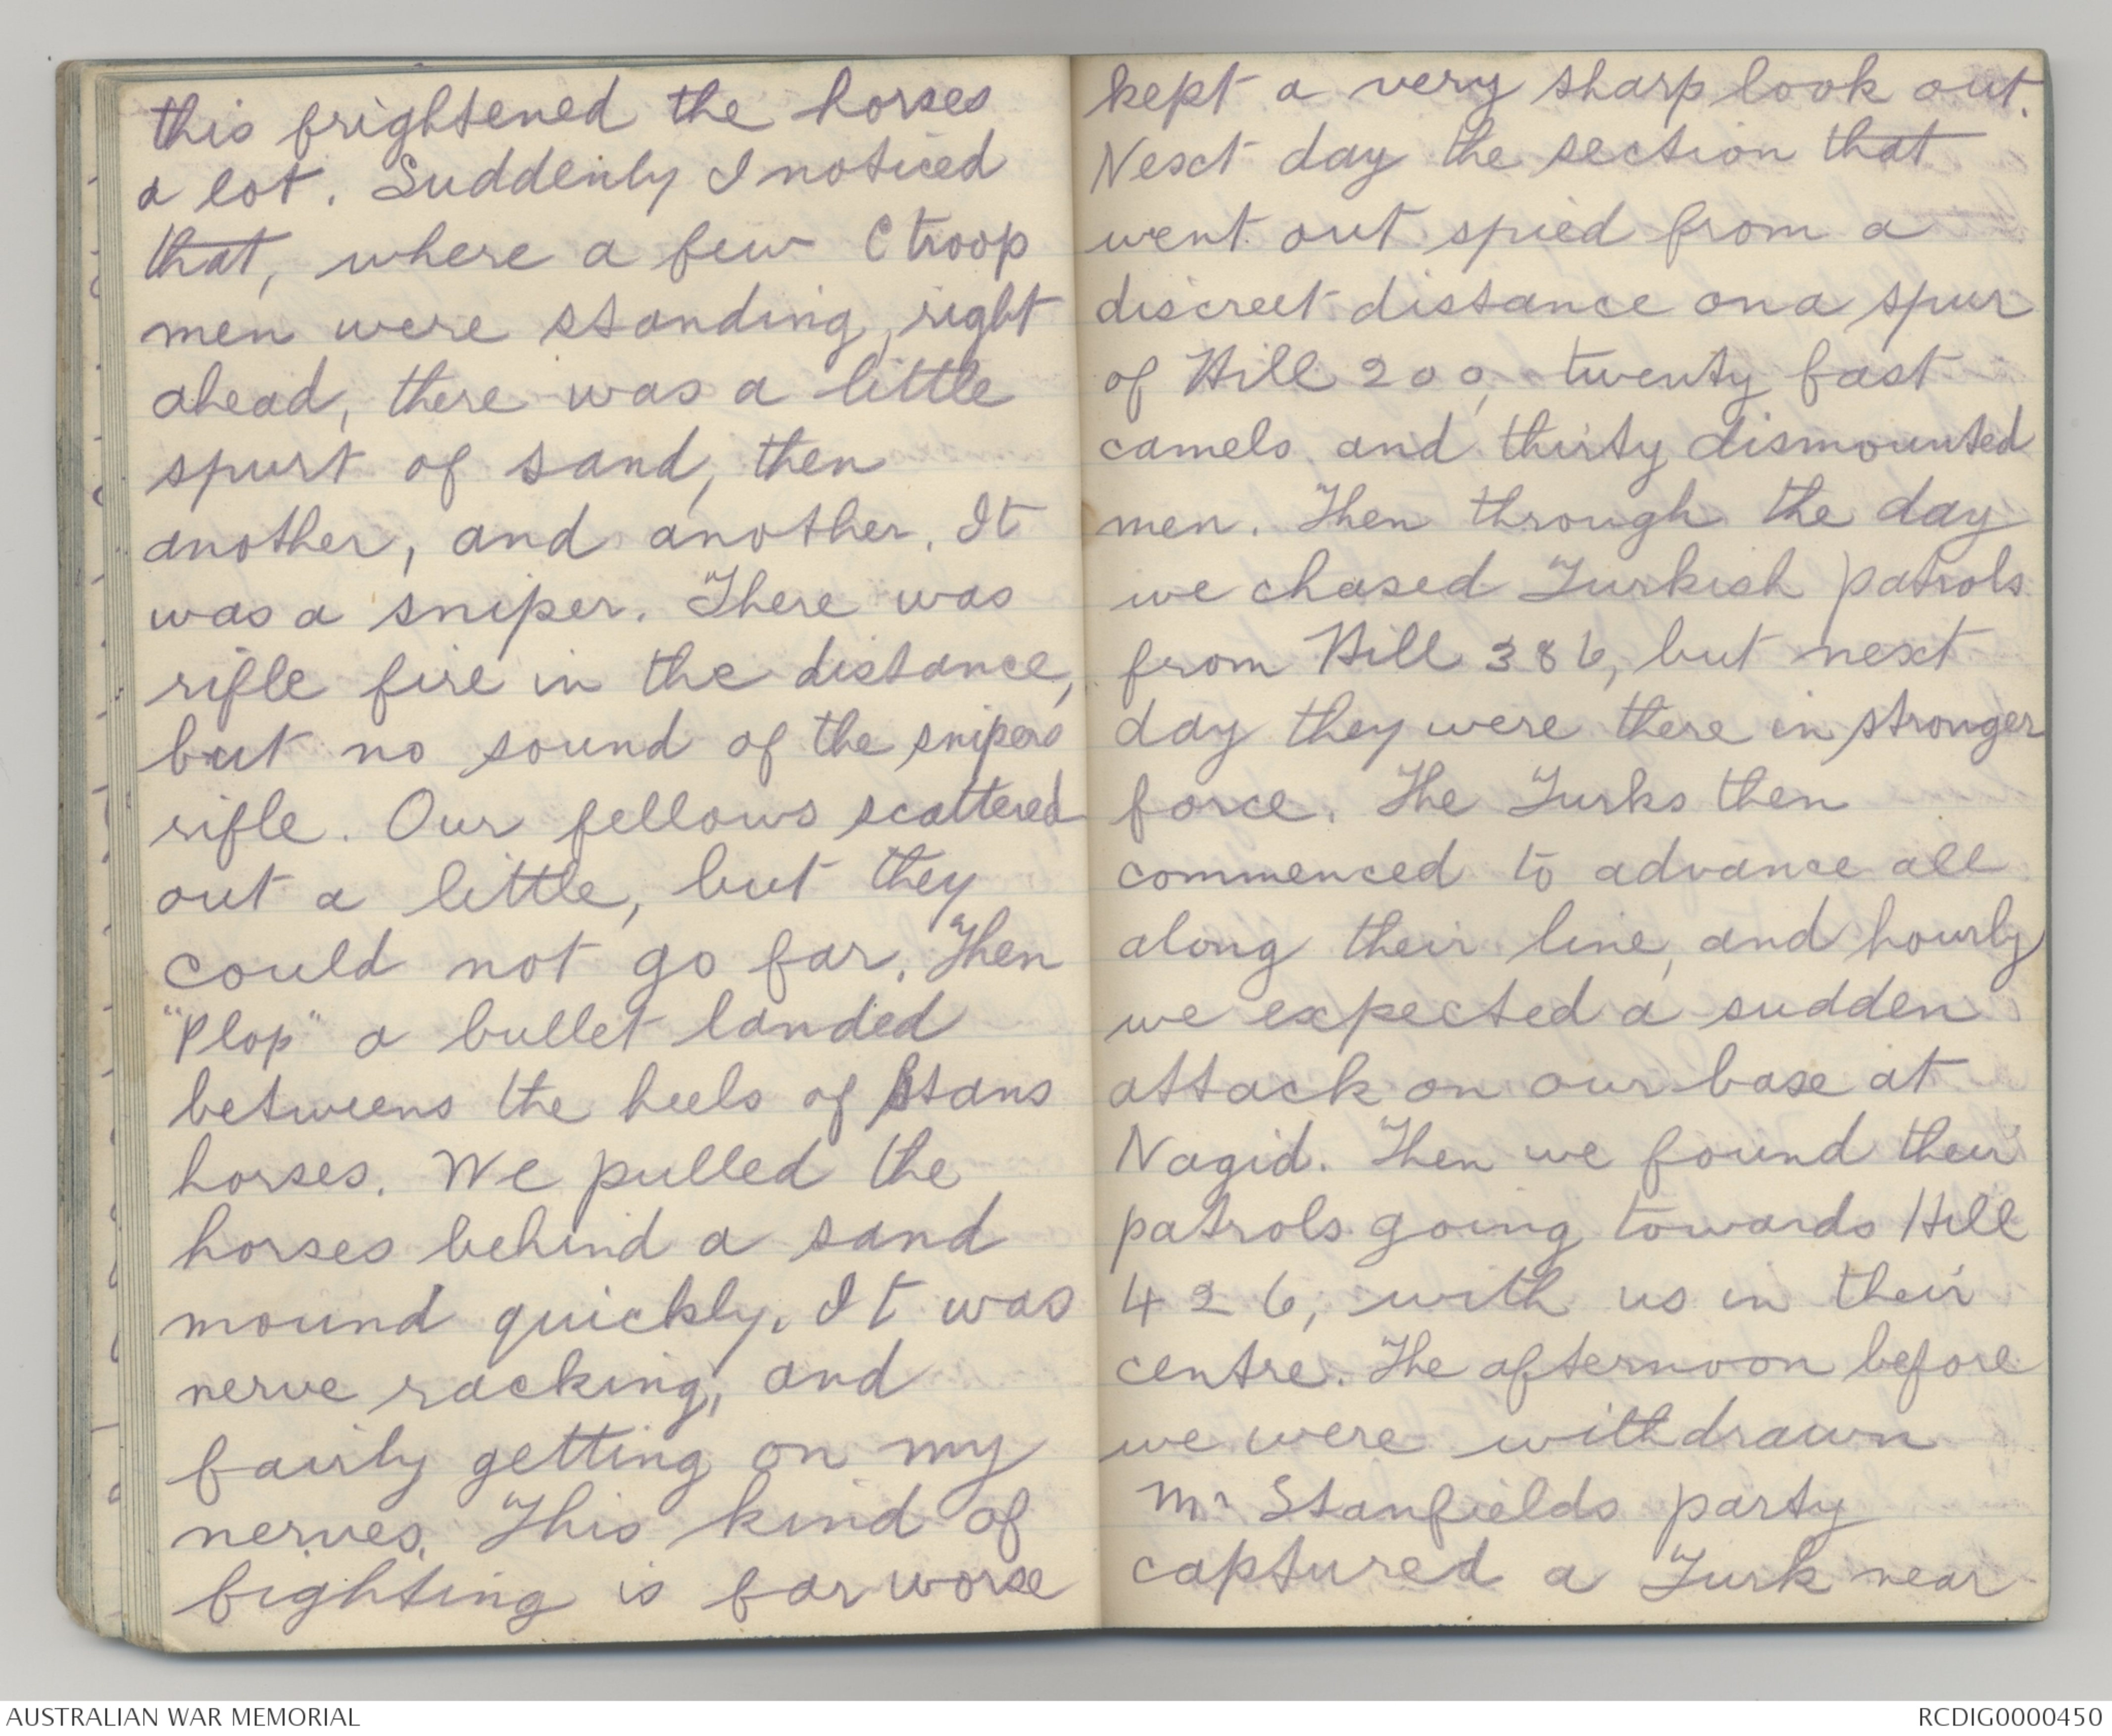 this frightened the horses
a lot. Suddenly I noticed
that, where a few C troop
men were standing, right
ahead, there was a little
spurt of sand, then
another, and another. It
was a sniper. There was
rifle fire in the distance,
but no sound of the snipers
rifle. Our fellows scattered
out a little, but they
could not go far. Then
"Plop" a bullet landed
betweens the heels of Stans
horses. We pulled the
horses behind a sand
mound quickly. It was
nerve racking, and
fairly getting on my
nerves. This kind of
fighting is far worse
kept a very sharp look out.
Next day the section that
went out spied from a
discreet distance on a spur
of Hill 200, twenty fast
camels and thirty dismounted
men. Then through the day
we chased Turkish patrols
from Hill 386, but next
day they were there in stronger
force. The Turks then
commenced to advance all
along their line, and hourly
we expected a sudden
attack on our base at
Nagid. Then we found their
patrols going towards Hill
426, with us in their
centre. The afternoon before
we were withdrawn
Mr Stanfields party
captured a Turk near
AUSTRALIAN WAR MEMORIAL
RCDIG0000450